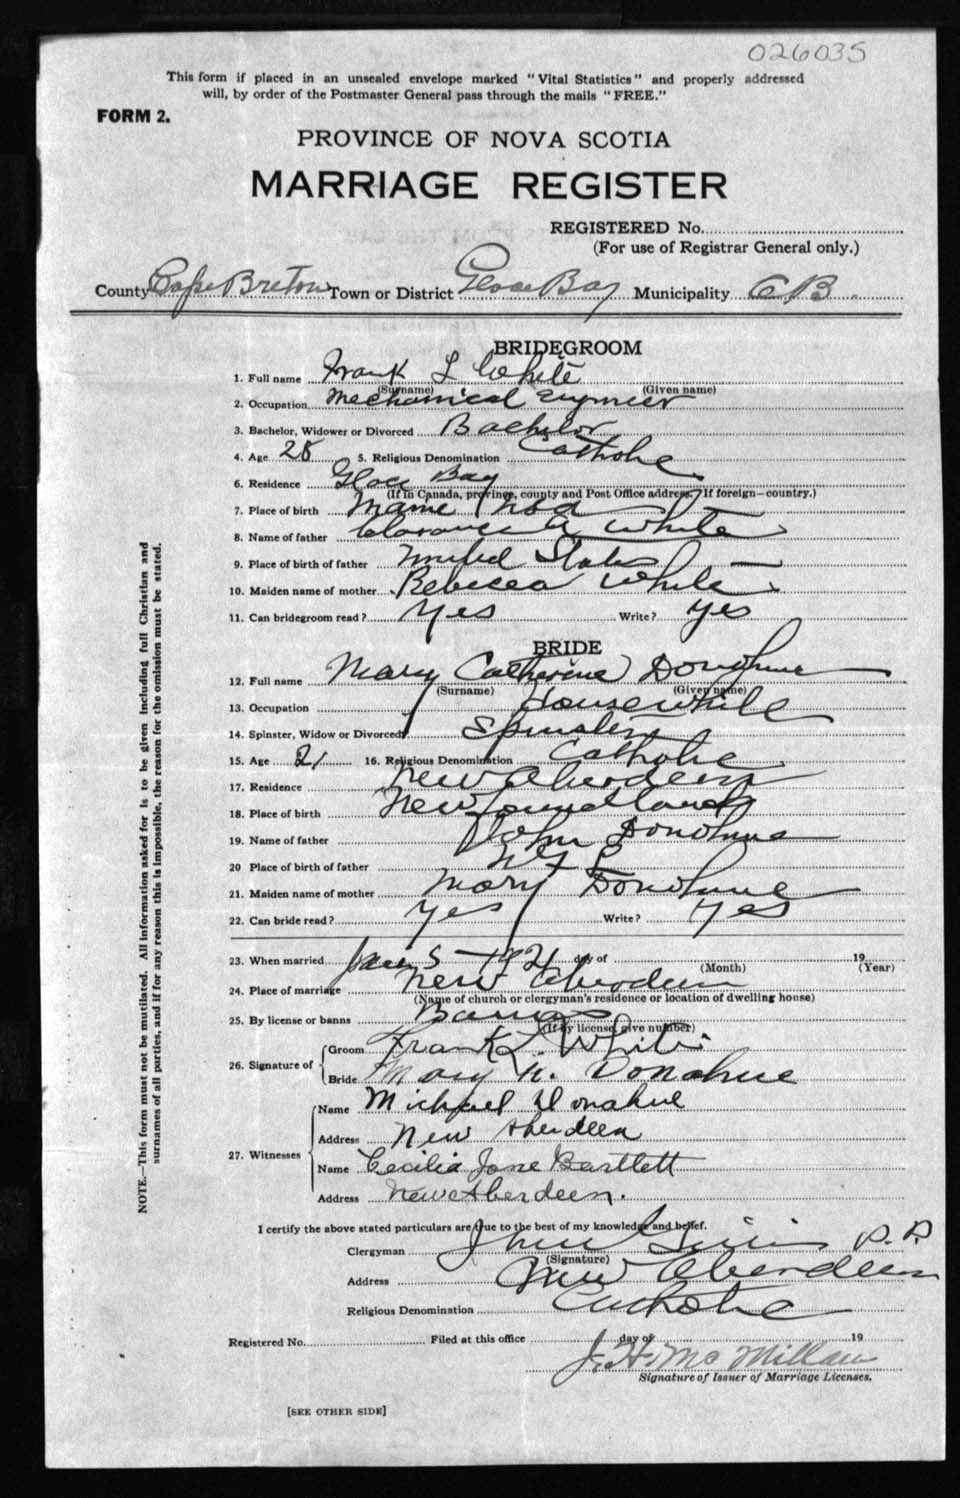 026035
This form if placed in an unsealed envelope marked "Vital Statistics" and properly addressed
will, by order of the Postmaster General pass through the mails "FREE."
FORM 2.
PROVINCE OF NOVA SCOTIA
MARRIAGE REGISTER
REGISTERED No.
(For use of Registrar General only.)
County Cape Breton Town or District Glace Bay Municipality C B.
BRIDEGROOM
1. Full name Frank L White
(Surname) (Given name)
2. Occupation Mechanical Engineer
3. Bachelor, Widower or Divorced Bachelor
4. Age 28 5. Religious Denomination Catholic
6. Residence Glace Bay
(If in Canada, province, county and Post Office address. If foreign—country.)
7. Place of birth Maine
8. Name of father Clarence A White
9. Place of birth of father United States
10. Maiden name of mother Rebecca White
11. Can bridegroom read? Yes Write? Yes
BRIDE
12. Full name Mary Catherine Donohue
(Surname) (Given name)
13. Occupation Housewhile
14. Spinster, Widow or Divorced Spinster
15. Age 21 16. Religious Denomination Catholic
17. Residence New Aberdeen
18. Place of birth Newfoundland
19. Name of father John Donohue
20 Place of birth of father Nfl
21. Maiden name of mother Mary Donohue
22. Can bride read? Yes Write? Yes
23. When married Jan 5 - 1921 day of 19
(Month) (Year)
24. Place of marriage New Aberdeen
(Name of church or clergyman's residence or location of dwelling house)
25. By license or banns Banns
(If by license, give number)
26. Signature of Groom Frank L. White
Bride Mary K. Donahue
27. Witnesses Name Michael Donahue
Address New Aberdeen
Name Cecilia Jane Bartlett
Address New Aberdeen.
I certify the above stated particulars are true to the best of my knowledge and belief.
Clergyman P. P.
(Signature)
Address New Aberdeen
Religious Denomination Catholic
Registered No. Filed at this office day of 19
J. H. McMillan
Signature of Issuer of Marriage Licenses.
[SEE OTHER SIDE]
NOTE.—This form must not be mutilated. All information asked for is to be given including full Christian and
surnames of all parties, and if for any reason this is impossible, the reason for the omission must be stated.